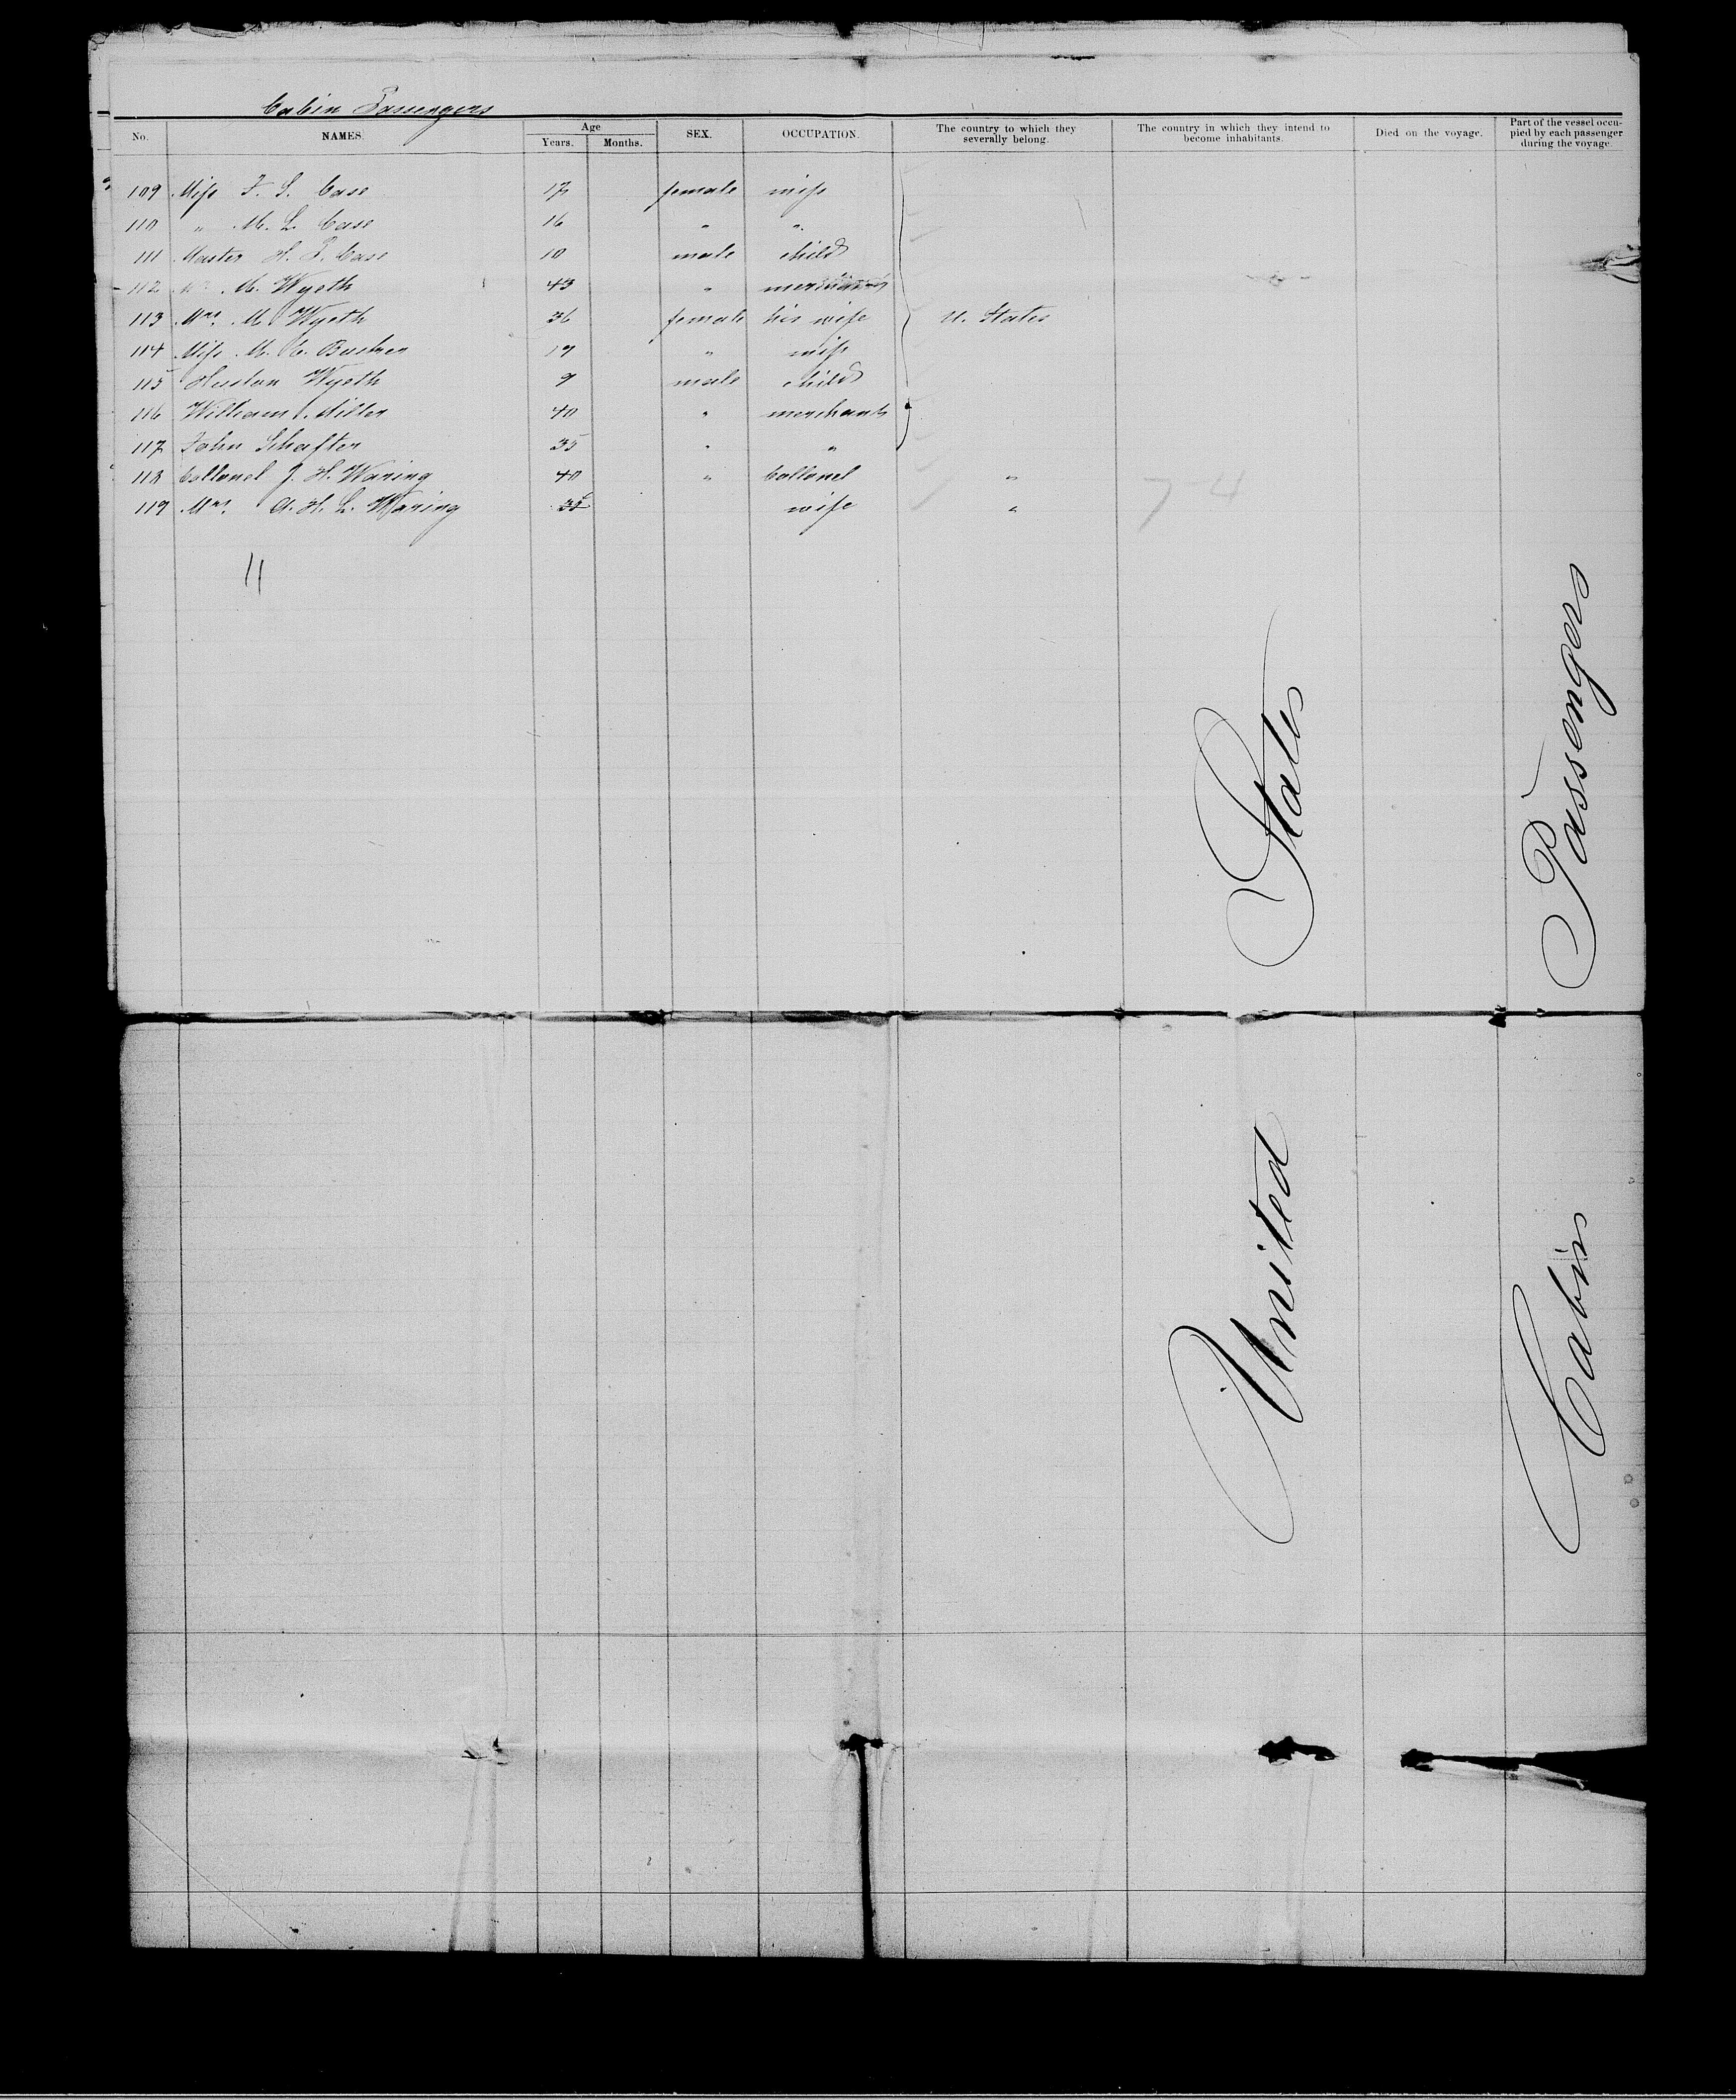 Cabin Passengers
No. NAMES. Age Years. Months. SEX. OCCUPATION. The country to which they severally belong. The country in which they intend to become inhabitants. Died on the voyage. Part of the vessel occupied by each passenger during the voyage
109 Miss F. S. Case 17 female miss
110 " M. L. Case 16 " "
111 Master H. P. Case 10 male child
112 Mr. M. Wyeth 43 " merchant
113 Mrs. M. Wyeth 36 female his wife U. States
114 Miss M. C. 19 " miss
115 Huston Wyeth 9 male child
116 William Miller 40 " merchants
117 John Schafter 35 " "
118 Collonel J. H. Waring 40 " Collonel "
119 Mrs. A. H. L. Waring 35 wife "
11
United States
Cabin Passengers